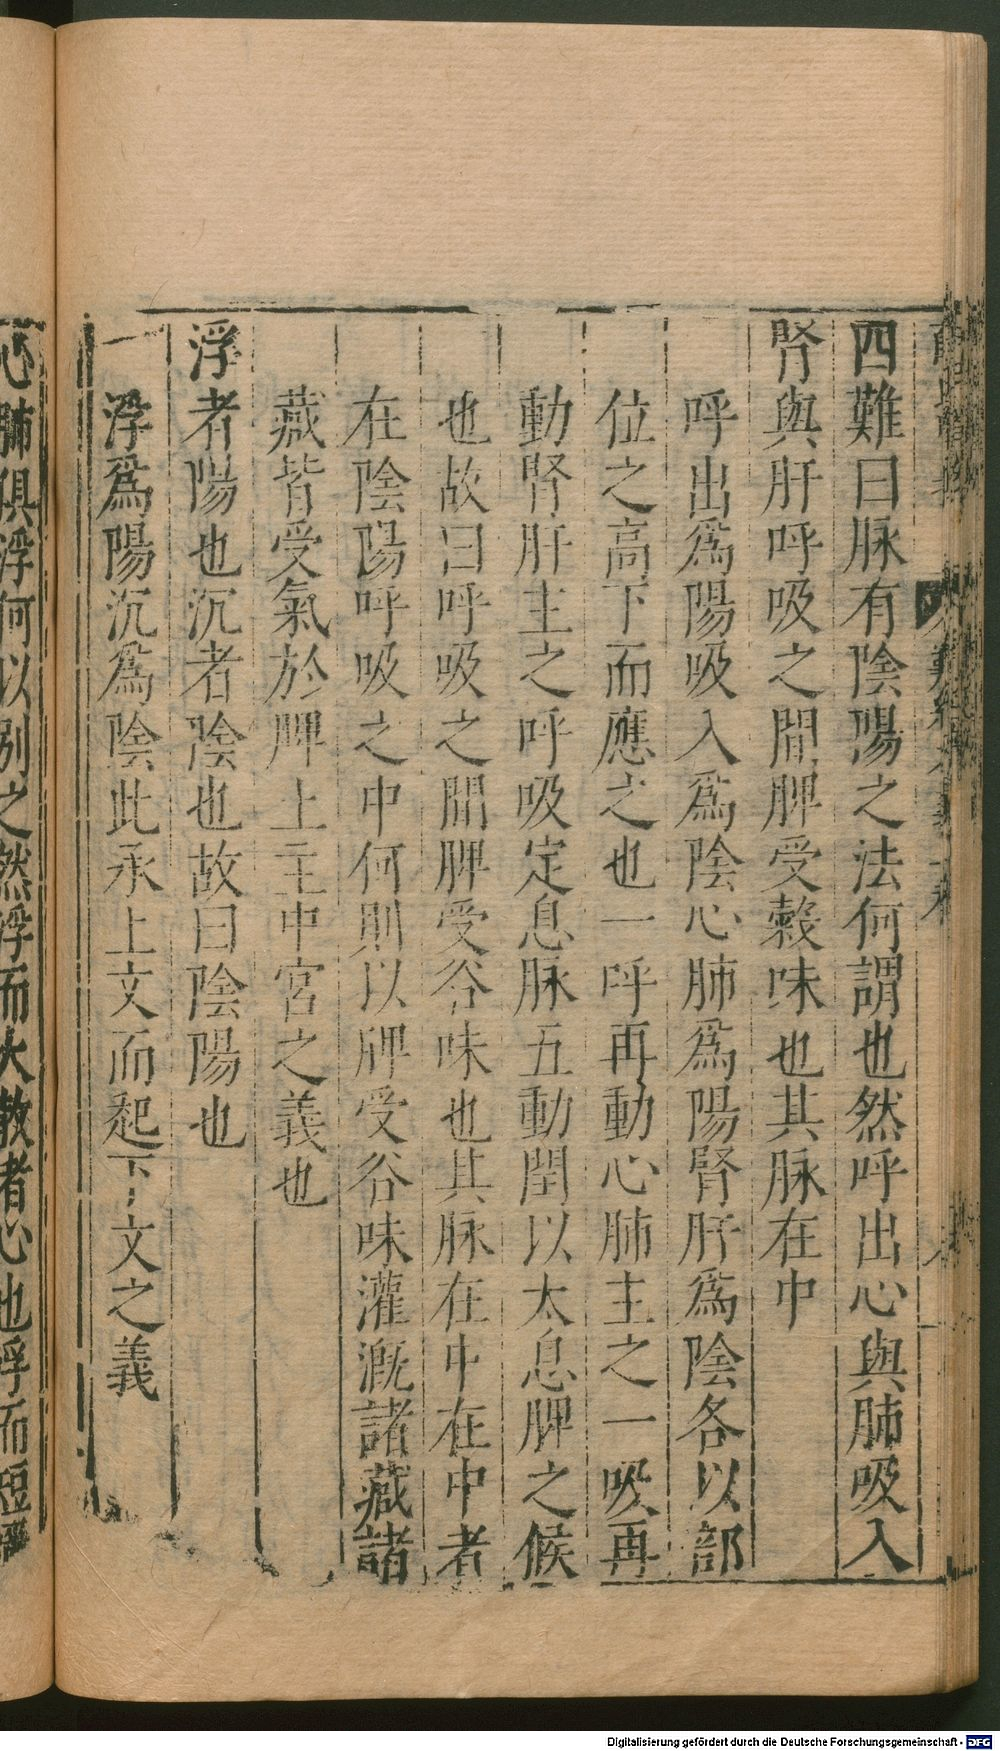 四難曰脉有陰陽之法何謂也然呼出心與肺吸入
腎與肝呼吸之間脾受穀味也其脉在中
呼出爲陽吸入爲陰心肺爲陽腎肝爲陰各以部
位之高下而應之也一呼再動心肺主之一吸再
動腎肝主之呼吸定息脉五動閏以太息脾之候
也故曰呼吸之間脾受谷味也其脉在中在中者
在陰陽呼吸之中何則以脾受谷味灌漑諸藏諸
藏皆受氣於脾土主中宮之義也
浮者陽也沉者陰也故曰陰陽也
浮爲陽沉爲陰此承上文而起下文之義
心肺俱浮何以別之然浮而大散者心也浮而短濇
Digitalisierung gefördert durch die Deutsche Forschungsgemeinschaft - DFG